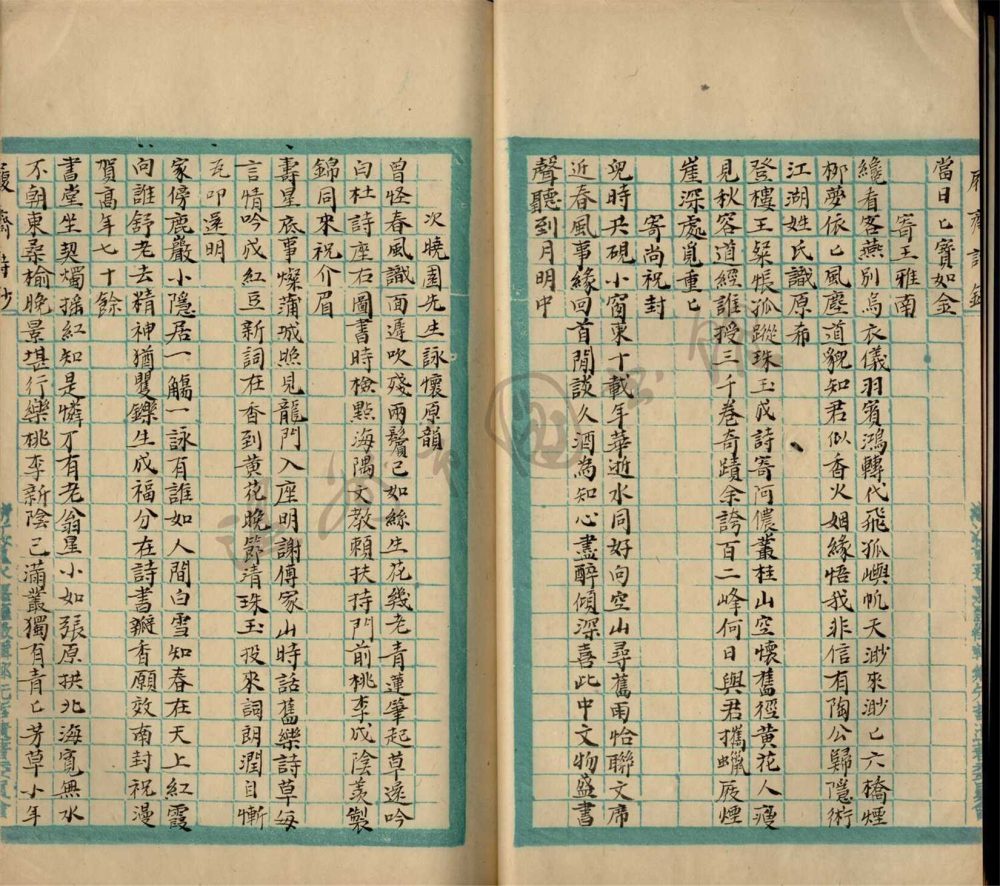 當日已寶如金
寄王雅南
纔看客燕別烏衣儀羽賓鴻轉代飛孤嶼帆天渺來渺已六橋煙
柳夢依已風塵道貌知君似香火姻緣悟我非信有陶公歸隱術
江湖姓氏識原希
登樓王粲悵孤蹤珠玉成詩寄阿儂叢桂山空懷舊徑黄花人瘦
見秋容道經誰授三千卷奇蹟余誇百二峰何日與君攜蠟屐煙
崖深處覓重已
寄尚祝封
兒時共硯小窗東十載年華逝水同好向空山尋舊雨恰聯文席
近春風事緣回首閒談久酒為知心盡醉傾深喜此中文物盛書
聲聽到月明中
次曉園先生詠懷原韻
曾怪春風識面遲吹殘兩鬢已如絲生花幾老青蓮筆起草遠吟
白杜詩座右圖書時檢點海隅文教賴扶持門前桃李成陰羨製
錦同來祝介眉
壽星底事燦蒲城照見龍門入座明謝傅家山時話舊樂詩草每
言情吟成紅豆新詞在香到黄花晚節清珠玉投來詞朗潤目慚
瓦叩遠明
家傍鹿巖小隱居一觴一詠有誰如人間白雪知春在天上紅霞
向誰舒老去精神猶矍鑠生成福分在詩書瓣香願效南封祝漫
賀高年七十餘
書堂坐契燭搖紅知是憐才有老翁星小如張原拱北海寬無水
不朝東桑榆晚景堪行樂桃李新陰已滿叢獨有青已芳草小年